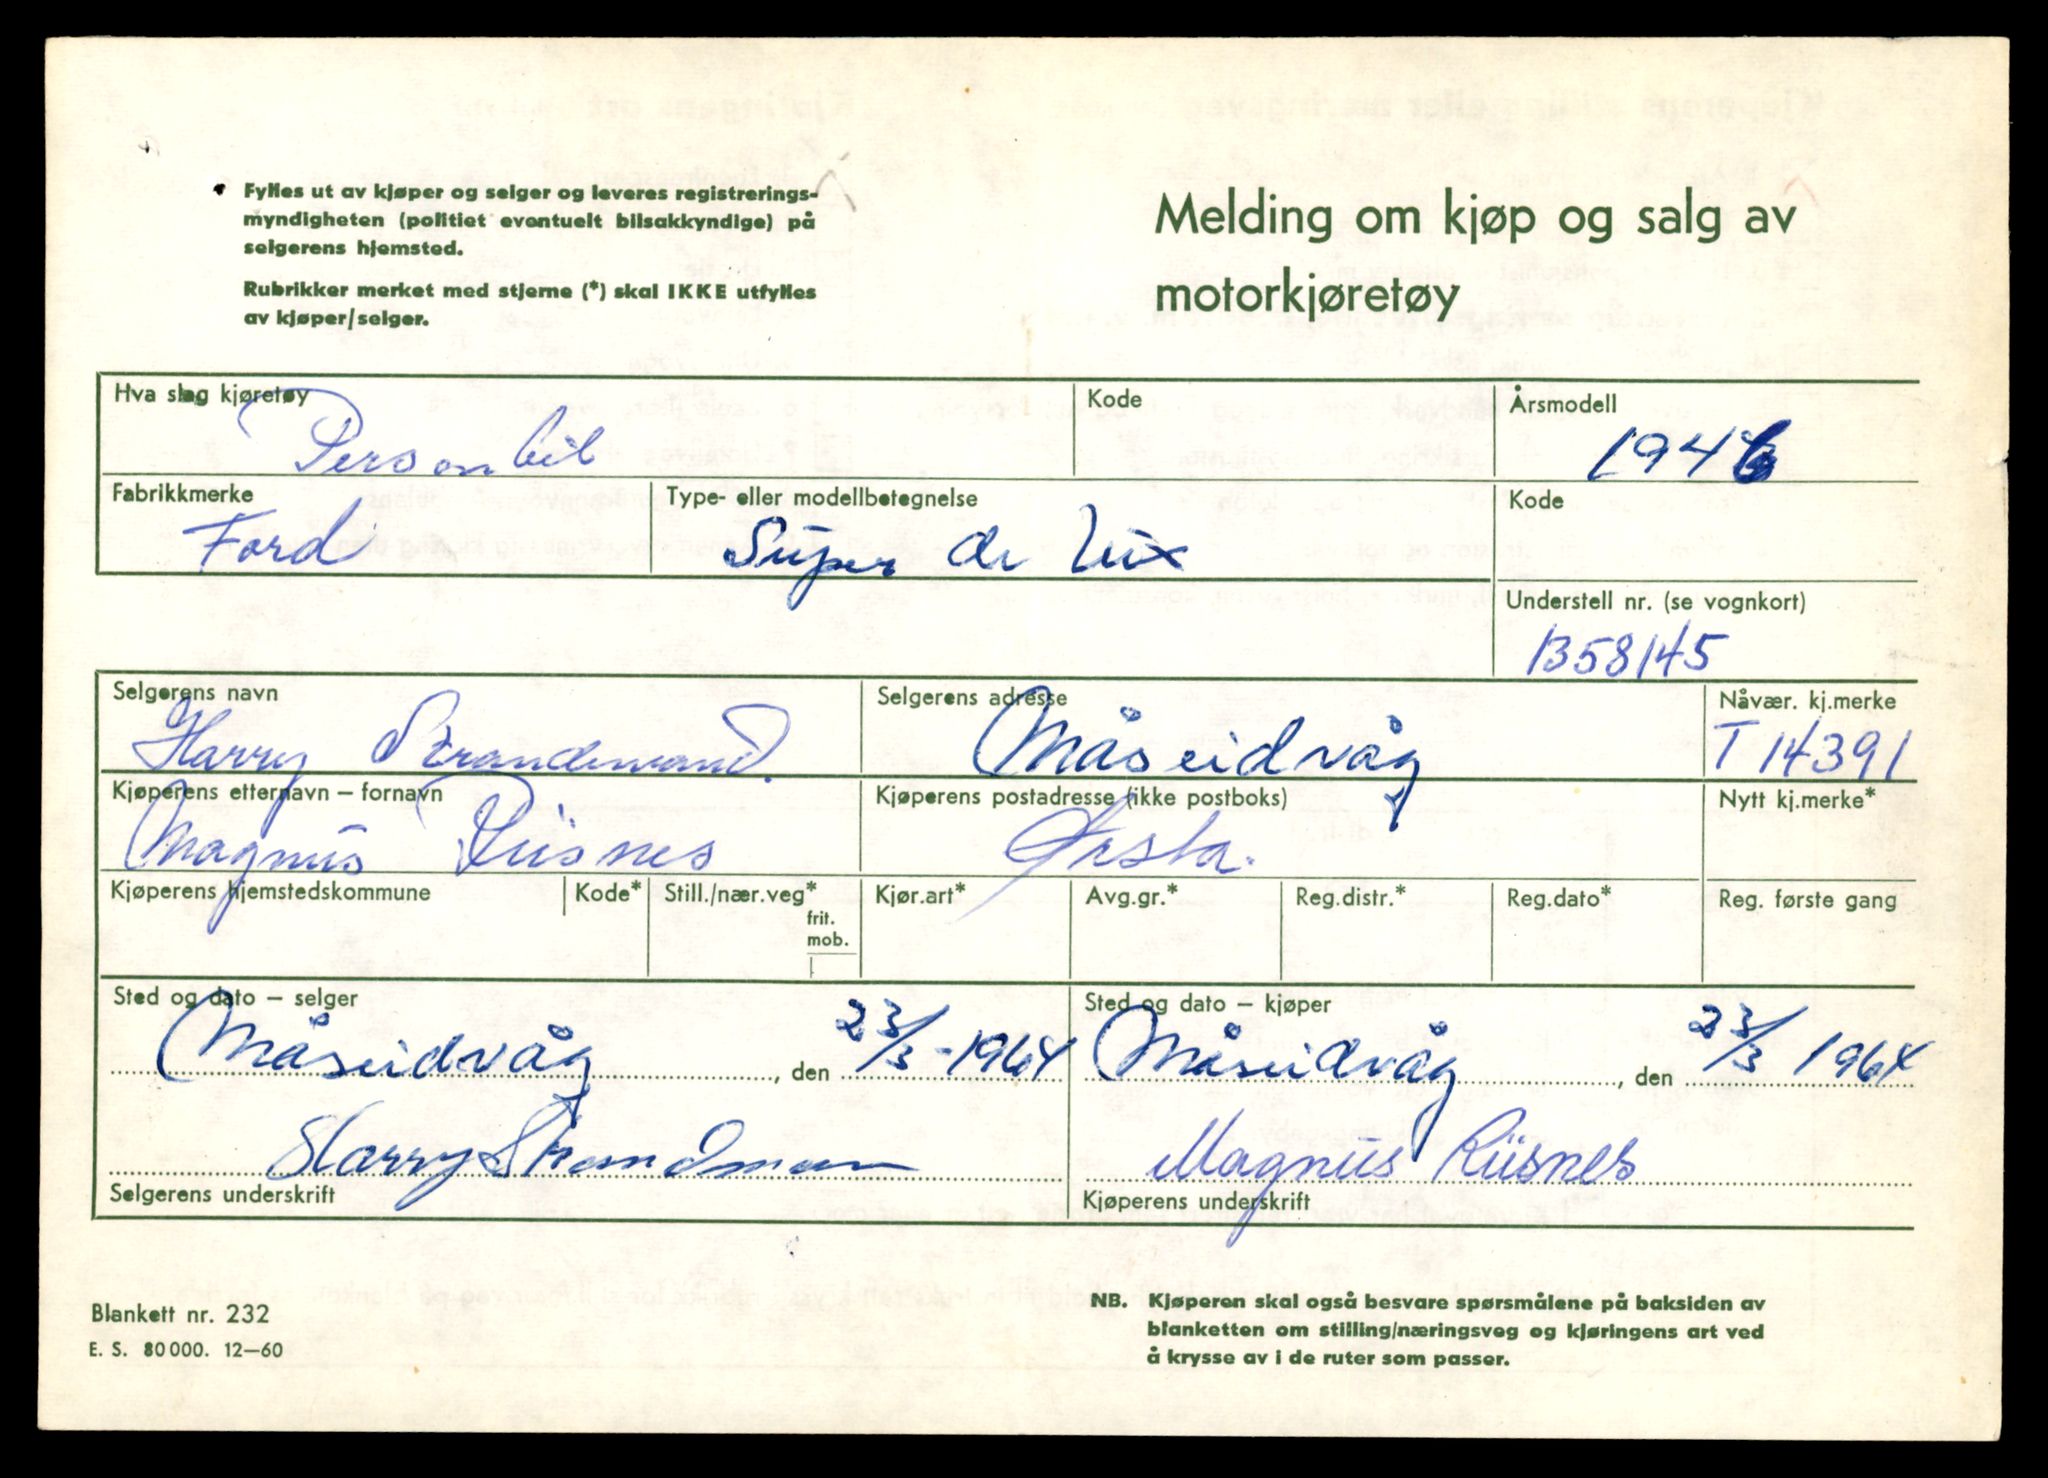 Fylles ut av kjøper og selger og leveres registrerings-
myndigheten (politiet eventuelt bilsakkyndige) på
selgerens hjemsted.
Rubrikker merket med stjerne (*) skal IKKE utfylles
av kjøper/selger.
Melding om kjøp og salg av
motorkjøretøy
Hva slag kjøretøy Kode Årsmodell
Personbil 1946
Fabrikkmerke Type- eller modellbetegnelse Kode
Ford Super de Lux
Understell nr. (se vognkort)
1358145
Selgerens navn Selgerens adresse Nåvær. kj.merke
Harry Måseidvåg T 14391
Kjøperens etternavn – fornavn Kjøperens postadresse (ikke postboks) Nytt kj.merke*
Magnus Riisnes Ørsta.
Kjøperens hjemstedskommune Kode* Still./nær.veg* Kjør.art* Avg.gr.* Reg.distr.* Reg.dato* Reg. første gang
frit.
mob.
Sted og dato – selger Sted og dato – kjøper
Måseidvåg, den 23/3-1964 Måseidvåg, den 23/3 1964
Harry Strandman Magnus Riisnes
Selgerens underskrift Kjøperens underskrift
Blankett nr. 232
E. S. 80 000. 12–60
NB. Kjøperen skal også besvare spørsmålene på baksiden av
blanketten om stilling/næringsveg og kjøringens art ved
å krysse av i de ruter som passer.